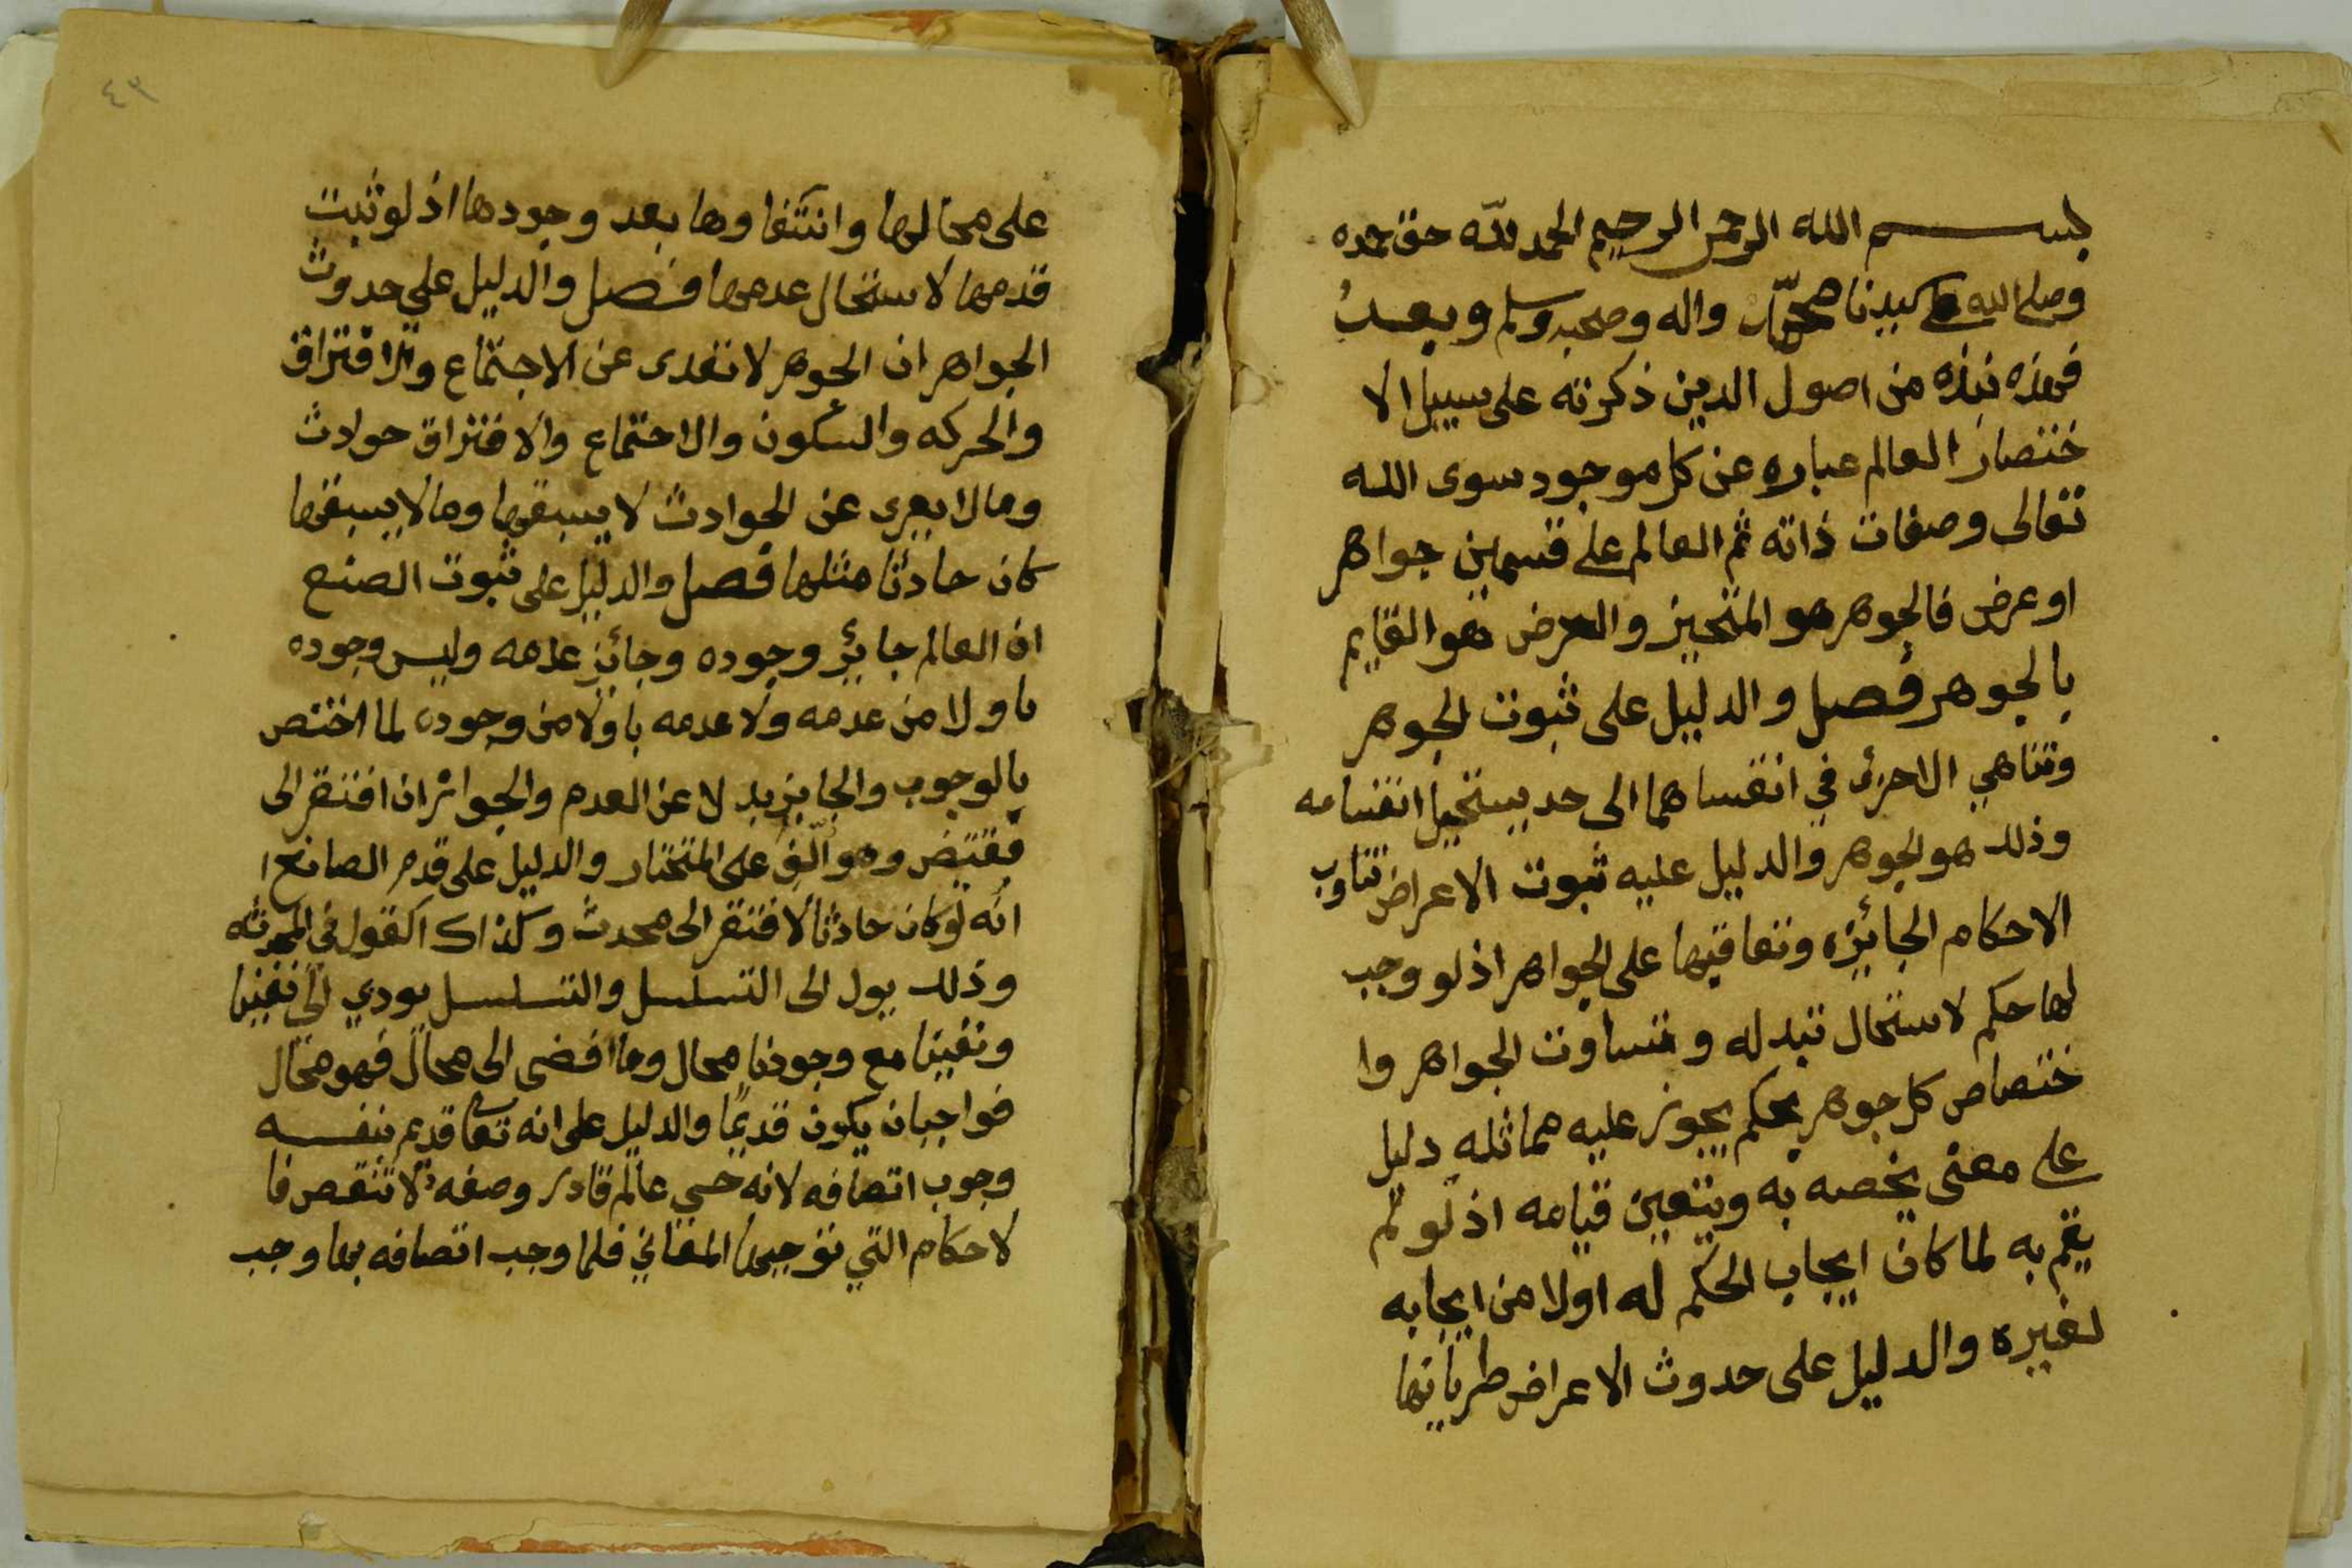 بسم الله الرحمن الرحيم الحمد لله حق حمده
وصلى الله على سيدنا محمد واله وصحبه وسلم وبعد
فهذه نبذه من اصول الدين ذكرته على سبيل الا
ختصار العالم عباره عن كل موجود سوى الله
تعالى وصفات ذاته ثم العالم على قسمين جواهر
او عرض فالجوهر هو المتحيز والعرض هو القايم
بالجوهر فصل والدليل على ثبوت الجوهر
وتناهي الاجزء في انقساهما الى حد يستحيل انقسامه
وذلك هو الجوهر والدليل عليه ثبوت الاعراض تناوب
الاحكام الجائزه وتعاقبها على الجواهر اذ لو وجب
لها حكم لاستحال تبدله وتساوت الجواهر وا
ختصاص كل جوهر بحكم يجوز عليه مماثله دليل
على معنى يخصه به ويتعين قيامه اذ لو لم
يقم به لما كان ايجاب الحكم له اولا من ايجابه
لغيره والدليل على حدوث الاعراض طريانها
٤٣
على محالها وانتفاوها بعد وجودها اذ لو ثبت
قدمها لاستحال عدمها فصل والدليل على حدوث
الجواهر ان الجوهر لا تعدى عن الاجتماع والافتراق
والحركه والسكون والاجتماع والافتراق حوادث
وما لا يعرى عن الحوادث لا يسبقها وما لا يسبقها
كان حادثا مثلها فصل والدليل على ثبوت الصنع
ان العالم جائز وجوده وجائز عدمه وليس وجوده
باولا من عدمه ولا عدمه باولا من وجوده لما اختص
بالوجوب والجايز بدلا عن العدم والجواز ان افتقر الى
مقتض وهو على المختار والدليل على قدم الصانع ا
انه لو كان حادثا لافتقر الى محدث وكذاك القول في
وذلك يول الى التسلسل والتسلسل يودي الى نفينا
ونفينا مع وجودنا محال وما افضى الى محال فهو محال
فواجب ان يكون قديما والدليل على انه تعالى قديم بنفسه
وجوب اتصافه لانه حي عالم قادر وصفه لا تنقص فا
لاحكام التي توجبها المعاني فلما وجب اتصافه بما وجب